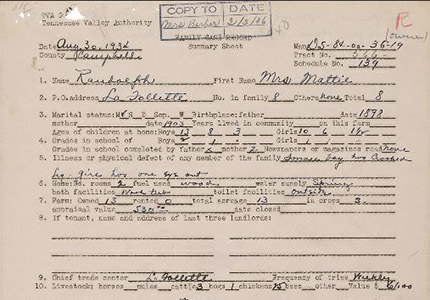 TVA 2
COPY TO DATE
Tennessee Valley Authority
Mrs Barker 2/5/36
R
(owner)
FAMILY CASE RECORD
Date Aug. 30, 1934 Summary Sheet Map D5-84-00-36-19
County Campbell Tract No.
Schedule No. 139
1. Name Randolph First Name Mrs. Mattie
2. P.O. address La Follette No. in family 8 Others none Total 8
3. Marital status: M S D Sep. W Birthplace: father 1898
mother 1903 Years lived in community on this farm
Ages of children at home: Boys 13 8 3 Girls 10 6
4. Grades in school of Boys Girls
Grades in school completed by father mother Newspapers or magazines read none
5. Illness or physical defect of any member of the family boy has crooked
leg - girl has one eye out
6. Home: No. rooms 2 fuel used wood water supply Spring
bath facilities toilet facilities outside
7. Farm: Owned 13 rented 0 total acreage 13 in crops 3
appraisal value date closed
8. If tenant, name and address of last three landlords:
9. Chief trade center La Follette Frequency of trips Weekly
10. Livestock: horses mules cattle 3 hogs 1 chickens 25 bees other Value $